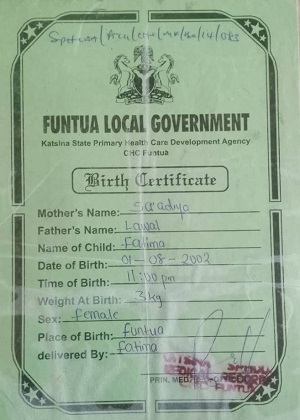 FUNTUA LOCAL GOVERNMENT
Katsina State Primary Health Care Development Agency
CHC Funtua
Birth Certificate
Mother's Name: Saadiya
Father's Name: Lawal
Name of Child: Fatima
Date of Birth: 01-08-2002
Time of Birth: 11:00pm
Weight At Birth: 3kg
Sex: female
Place of Birth: Funtua
delivered By: Fatima
PRIN. MED.